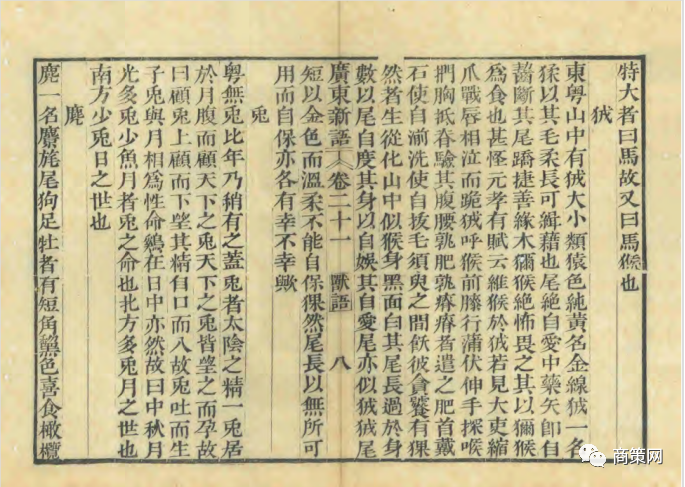 特大者曰馬故又曰馬猴也
狨
東粵山中有狨大小類猿色純黃名金線狨一名
猱以其毛柔長可緝藉也尾絕自愛中藥矢卽自
齧斷其尾蹻捷善緣木獼猴絕怖畏之其以獼猴
爲食也甚怪元孝有賦云維猴於狨若見大更縮
爪戰唇相泣而跪狨呼猴前膝行蒲伏伸手探喉
捫胸抵脊驗其腹腰孰肥孰瘠瘠者遣之肥首戴
石使自湔洗使自拔毛須臾之間飫彼貪饕有猓
然者生從化山中似猴身黑面白其尾長過於身
數以尾自度其身以自娛其自愛尾亦似狨狨尾
廣東新語 卷二十一 獸語 八
短以金色而溫柔不能自保猓然尾長以無所可
用而自保亦各有幸不幸歟
兔
粵無兔比年乃稍有之蓋兔者太陰之精一兔居
於月腹而顧天下之兔天下之兔皆望之而孕故
曰顧兔上顧而下望其精自口而入故兔吐而生
子兔與月相爲性命鷄在日中亦然故曰中秋月
光多兔少魚月者兔之命也北方多兔月之世也
南方少兔日之世也
麂
麂一名麕旄尾狗足牡者有短角黧色喜食橄欖
商策网